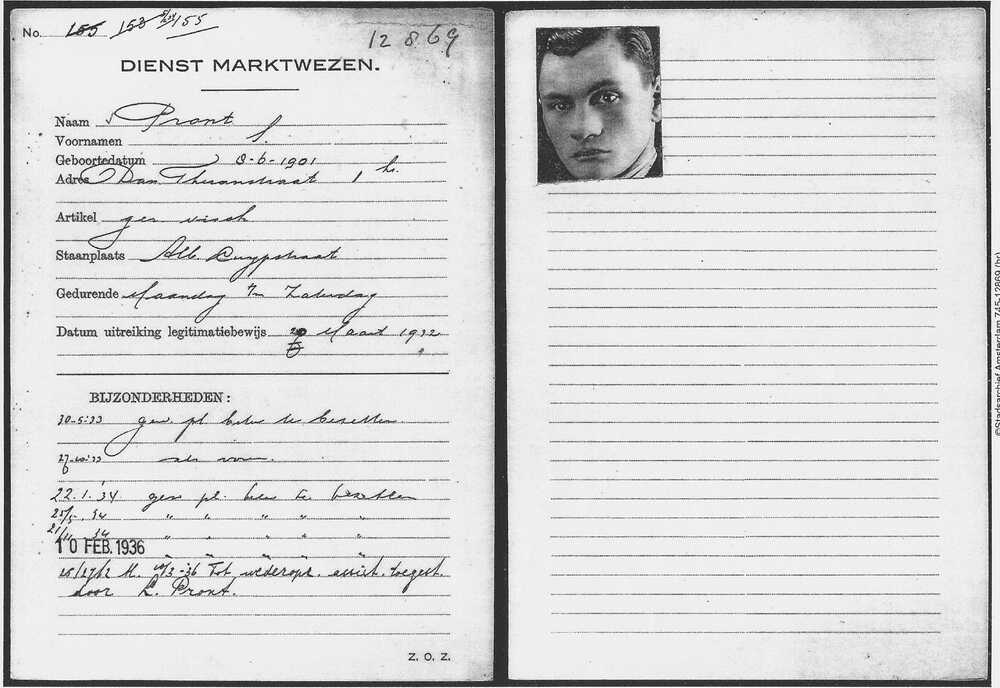 No. 155 153 155
12869
DIENST MARKTWEZEN.
Naam Pront
Voornamen S.
Geboortedatum 8-6-1901
Adres Dan Theronstraat 1 hs.
Artikel ger visch
Staanplaats Alb. Cuypstraat
Gedurende Maandag t/m Zaterdag
Datum uitreiking legitimatiebewijs Maart 1932
BIJZONDERHEDEN:
30-5-33 gew. pl. beter te bezetten
27-10-33 als voren.
22.1.34 gew pl. beter te bezetten
25/5.34 " " " " "
21/11 34 " " " " "
10 FEB. 1936 " " " " "
25/27/2 M. 20/3-36 Tot wederopz. assist. toegest.
door L. Pront.
Z. O. Z.
©Stadsarchief Amsterdam 745-12869 (hr)